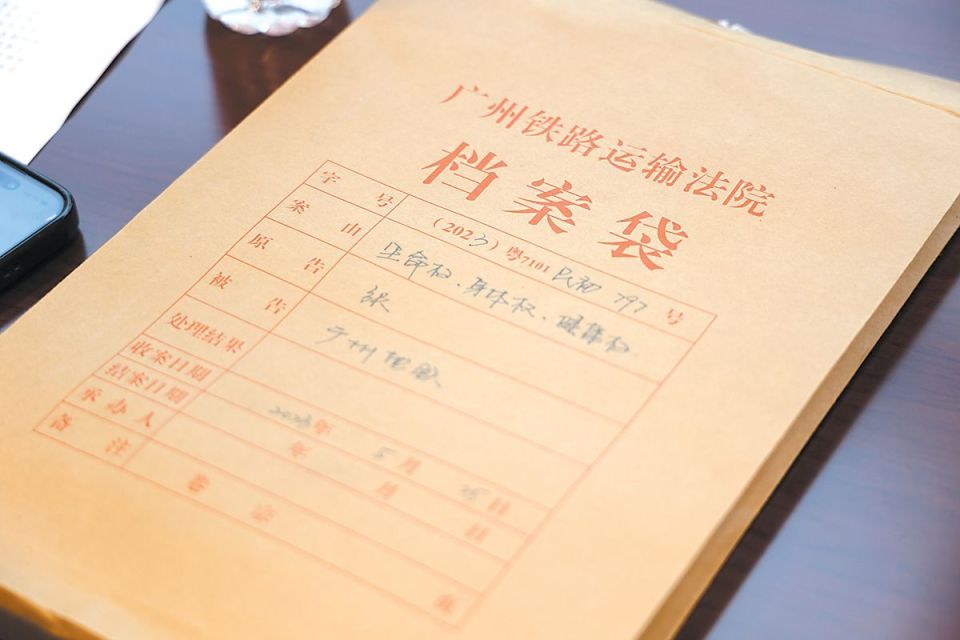 广州铁路运输法院
档案袋
字号 (2023)粤7101民初797号
案由 生命权、身体权、健康权
原告 张
被告 广州地铁
处理结果
收案日期 2023年5月 日
结案日期 年 月 日
承办人
备注